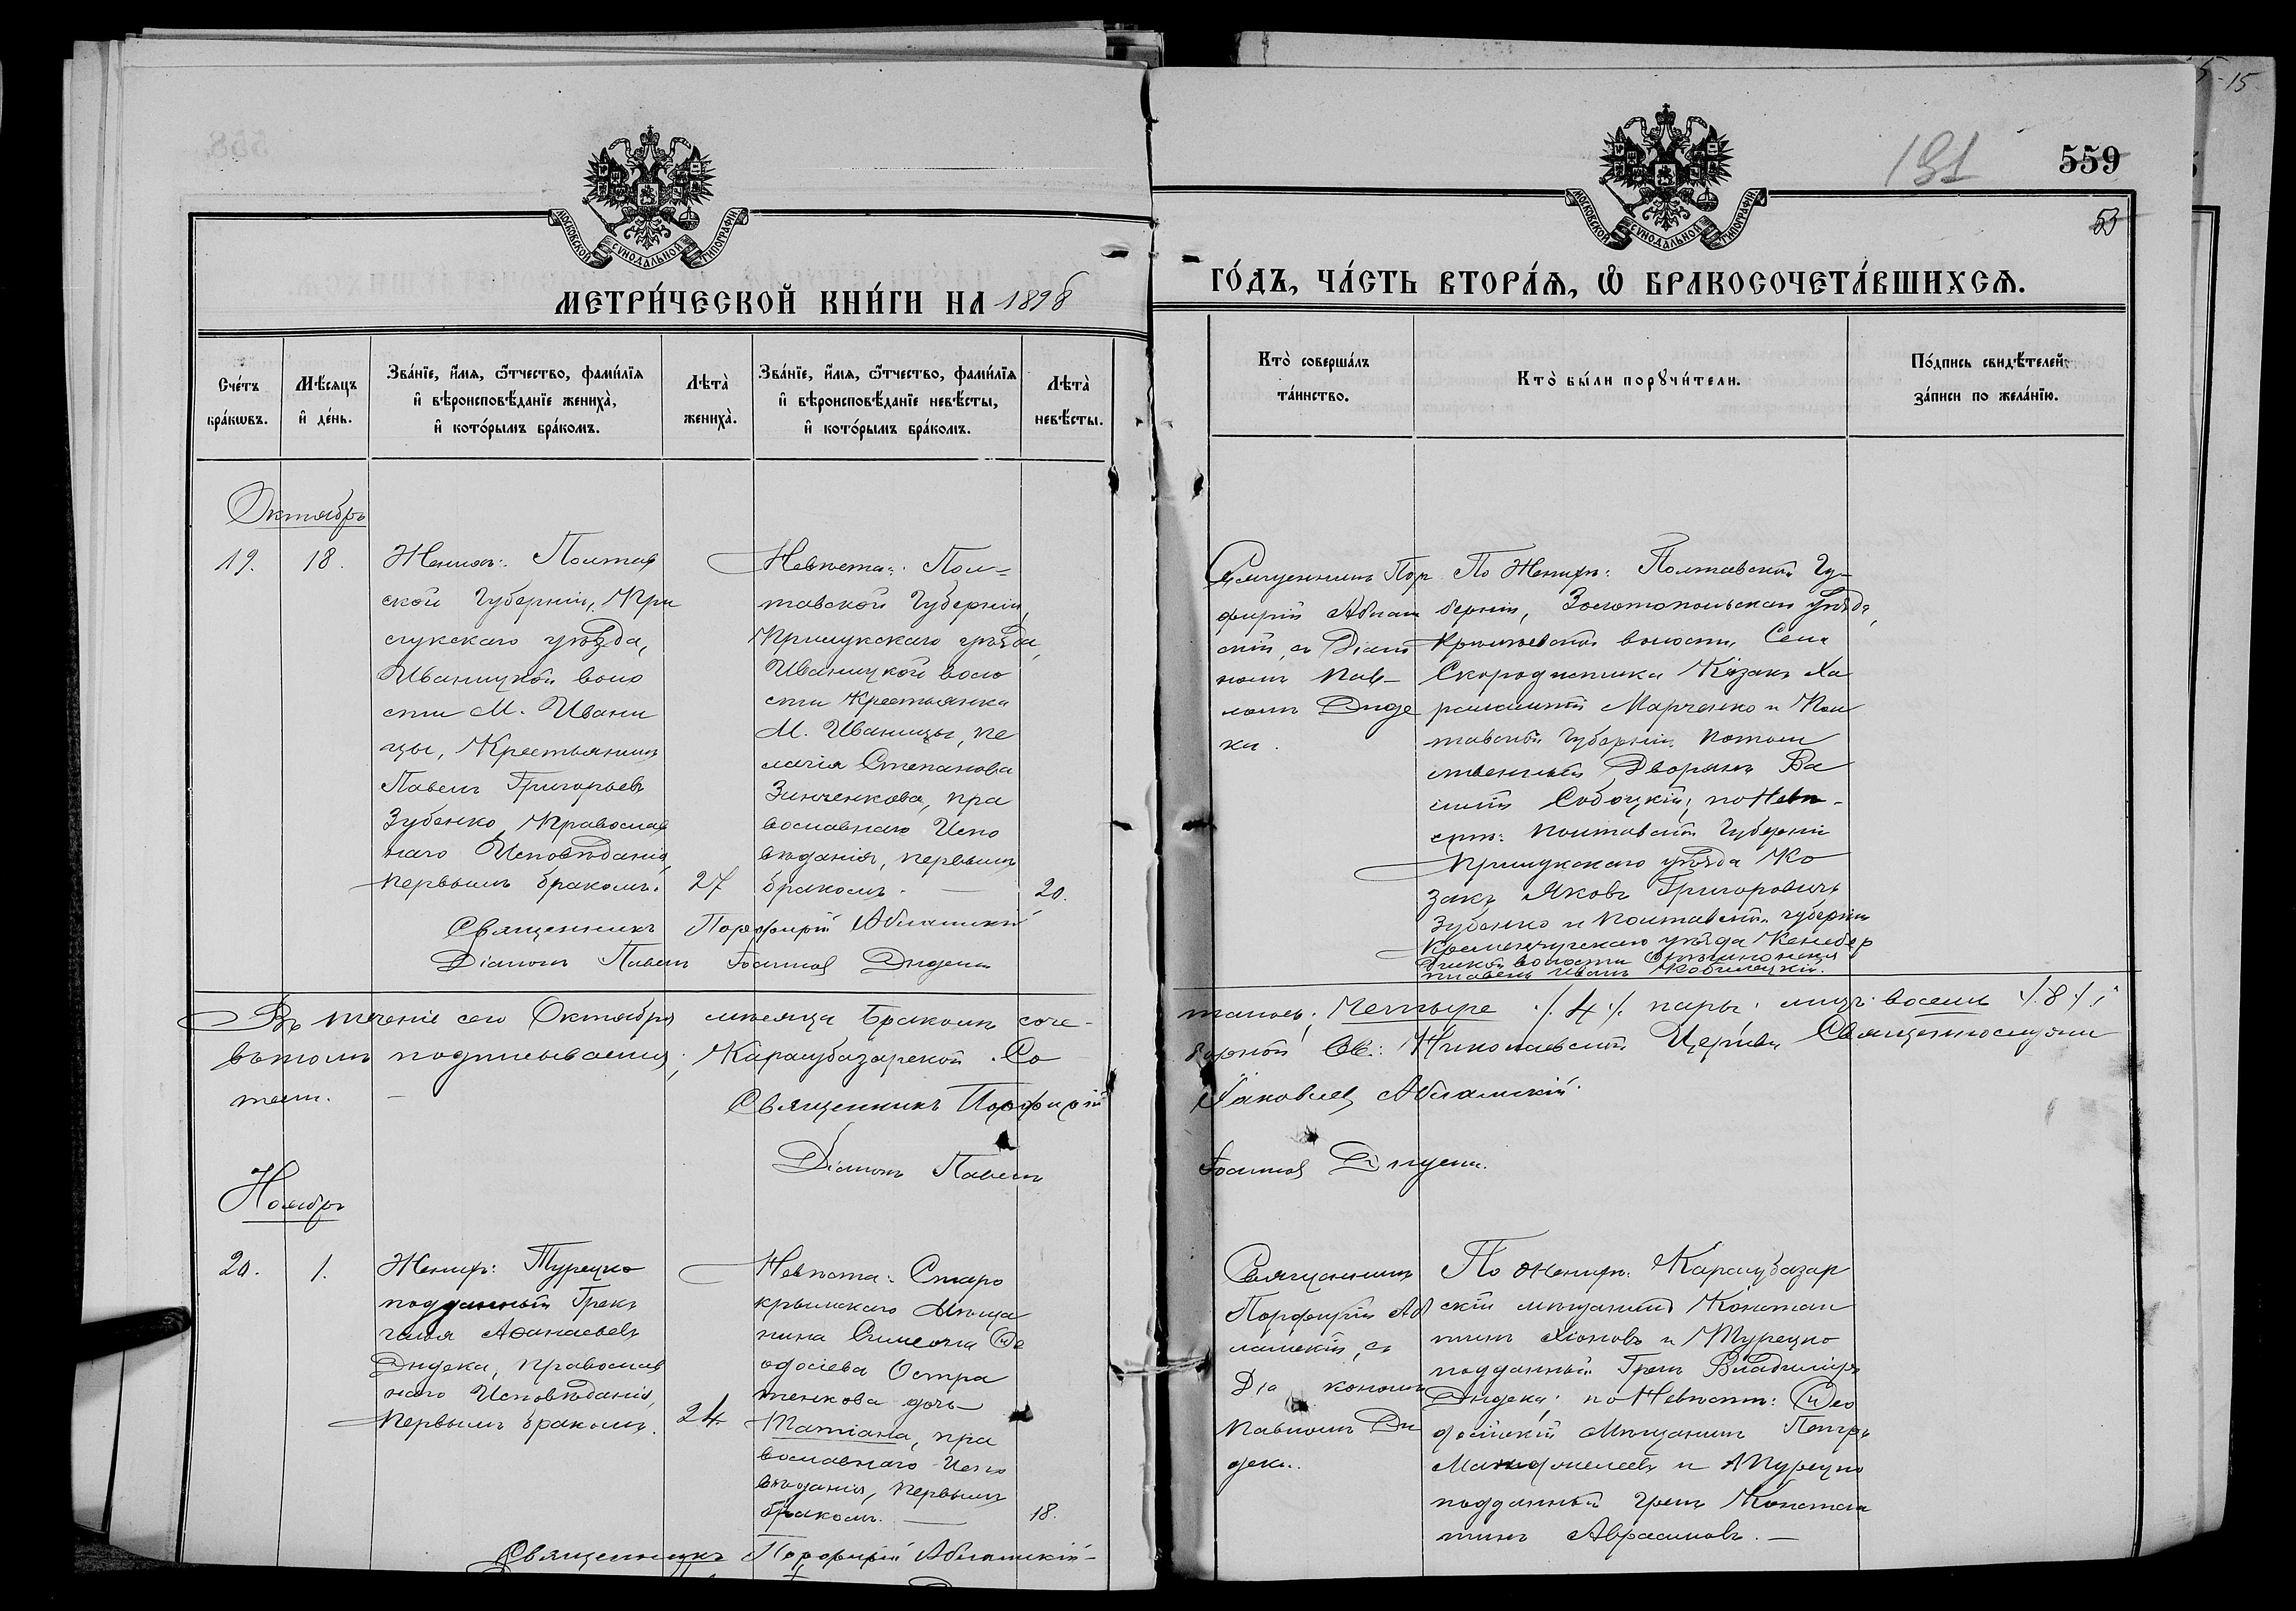 МОСКОВСКОЙ СУНОДАЛЬНОЙ ТИПОГРАФІИ
МЕТРИ́ЧЕСКОЙ КНИ́ГИ НА 1898
Сче́тъ бра́кωвъ.
Мѣ́сяцъ и҆ де́нь.
Зва́нїе, и҆́мя, ѻ҆́тчество, фами́лїя
и҆ вѣроисповѣ́данїе жениха̀,
и҆ кото́рымъ бра́комъ.
Лѣта̀ жениха̀.
Зва́нїе, и҆́мя, ѻ҆́тчество, фами́лїя
и҆ вѣроисповѣ́данїе невѣ́сты,
и҆ кото́рымъ бра́комъ.
Лѣта̀ невѣ́сты.
Октябрь
19.
18.
Женихъ: Полтав
ской Губерніи, При
лукскаго уѣзда,
Иваницкой воло
сти М. Ивани
цы, Крестьянинъ
Павелъ Григорьевъ
Зубенко, Православ
наго Исповѣданія,
первымъ бракомъ.
27
Невѣста: Пол=
тавской Губерніи,
Прилукскаго уѣзда,
Иваницкой воло
сти Крестьянка
М. Иваницы, Пе
лагія Степанова
Зинченкова, пра
вославнаго Испо
вѣданія, первымъ
бракомъ. —
20.
Священникъ Порфирій Абламскій
Діаконъ Павелъ Іоанновъ Дидека
Въ теченіе сего Октября мѣсяца бракомъ соче-
въ томъ подписываемся; Карасубазарской Со
тели. —
Священникъ Порфирій
Діаконъ Павелъ
Ноябрь
20.
1.
Женихъ: Турецко
подданный Грекъ
Илья Аѳанасьевъ
Дидека, Православ
наго Исповѣданія,
первымъ бракомъ.
24
Невѣста: Старо
крымскаго Мѣща
нина Симеона Ѳе
одосіева Остра
тенкова дочь
Татіана, пра
вославнаго Испо
вѣданія, первымъ
бракомъ. —
18.
Священникъ Порфирій Абламскій
5-15
191
559
53
МОСКОВСКОЙ СУНОДАЛЬНОЙ ТИПОГРАФІИ
ГО́ДЪ, ЧА́СТЬ ВТОРА́Я, Ѡ҆ БРАКОСОЧЕТА́ВШИХСЯ.
Кто̀ соверша́лъ та́инство.
Кто̀ бы́ли порꙋчи́тели.
По́дпись свидѣ́телей за́писи по жела́нїю.
Священникъ Пор
фирій Аблам
скій, съ Діако
номъ Пав-
ломъ Диде
ки.
По Женихѣ: Полтавской Гу-
берніи, Золотопольскаго уѣзда,
волости, Села
Скородистика Козакъ Ха
Марченко и Пол
тавской Губерніи Потом
ственный Дворянъ Ва
силій Собоцкій; по Невѣ-
стѣ: Полтавской Губерніи
Прилукскаго уѣзда Ко
закъ Яковъ Григоровичъ
Зубенко и Полтавской губерніи
Кременчугскаго уѣзда Кенебер
дянской волости
Иванъ
тались; Четыре /.4./. пары: лицъ восемь /.8./.;
борной Св.: Николаевской Церкви Священнослужи
Іаковлевъ Абламскій.
Іоанновъ Дидека.
Священникъ
Порфирій Аб
ламскій, съ
Діакономъ
Павломъ Ди
деки.
По Женихѣ: Карасубазар
скій мѣщанинъ Констан
тинъ Хіоновъ и Турецко
подданный Грекъ Владиміръ
Дидека; по Невѣстѣ: Ѳео
досійскій Мѣщанинъ Петръ
и Турецко
подданный Грекъ Констан
тинъ Аврасимовъ. —